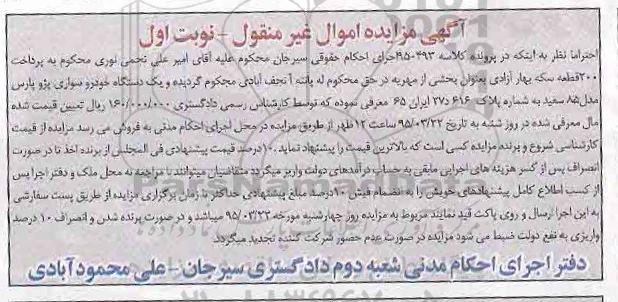 آگهی مزایده اموال غیر منقول - نوبت اول
احتراما نظر به اینکه در پرونده کلاسه 493-95 اجرای احکام حقوقی سیرجان محکوم علیه آقای امیر علی نجمی نوری محکوم به پرداخت
200قطعه سکه بهار آزادی بعنوان بخشی از مهریه در حق محکوم له یافته آنجف آبادی محکوم گردیده و یک دستگاه خودرو سواری پژو پارس
مدل85 سفید به شماره پلاک 616 د27 ایران 65 معرفی نموده که توسط کارشناس رسمی دادگستری 160/000/000 ریال تعیین قیمت شده
مال معرفی شده در روز شنبه به تاریخ 95/03/22 ساعت 12ظهر از طریق مزایده در محل اجرای احکام مدنی به فروش می رسد مزایده از قیمت
کارشناسی شروع و برنده مزایده کسی است که بالاترین قیمت را پیشنهاد نماید. 10درصد قیمت پیشنهادی فی المجلس از برنده اخذ تا در صورت
انصراف پس از کسر هزینه های اجرایی مابقی به حساب درآمدهای دولت واریز میگردد متقاضیان میتوانند با مراجعه به محل ملک و دفتر اجرا پس
از کسب اطلاع کامل پیشنهادهای خویش را به انضمام فیش 10درصد مبلغ پیشنهادی حداکثر تا زمان برگزاری مزایده از طریق پست سفارشی
به این اجرا ارسال و روی پاکت قید نمایند مربوط به مزایده روز چهارشنبه مورخه 95/03/22 میباشد و در صورت برنده شدن و انصراف 10 درصد
واریزی به نفع دولت ضبط می شود مزایده در صورت عدم حضور شرکت کننده تجدید میگردد
دفتر اجرای احکام مدنی شعبه دوم دادگستری سیرجان - علی محمودآبادی